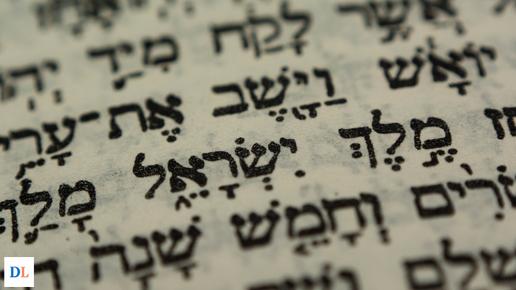 אֲשֶׁר לָקַח מִיַּד
יוֹאָשׁ וַיָּשֶׁב אֶת־עָרֵי
חז מֶלֶךְ יִשְׂרָאֵל מָלַךְ
שְׂרִים וְחָמֵשׁ שָׁנָה
שלם
DL